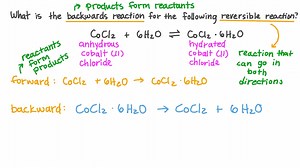 → products form reactants
What is the backwards reaction for the following reversible reaction?
CoCl₂ + 6H₂O ⇌ CoCl₂·6H₂O
reactants form products
anhydrous cobalt (II) chloride
hydrated cobalt (II) chloride
reaction that can go in both directions
forward: CoCl₂ + 6H₂O → CoCl₂·6H₂O
backward: CoCl₂·6H₂O → CoCl₂ + 6H₂O